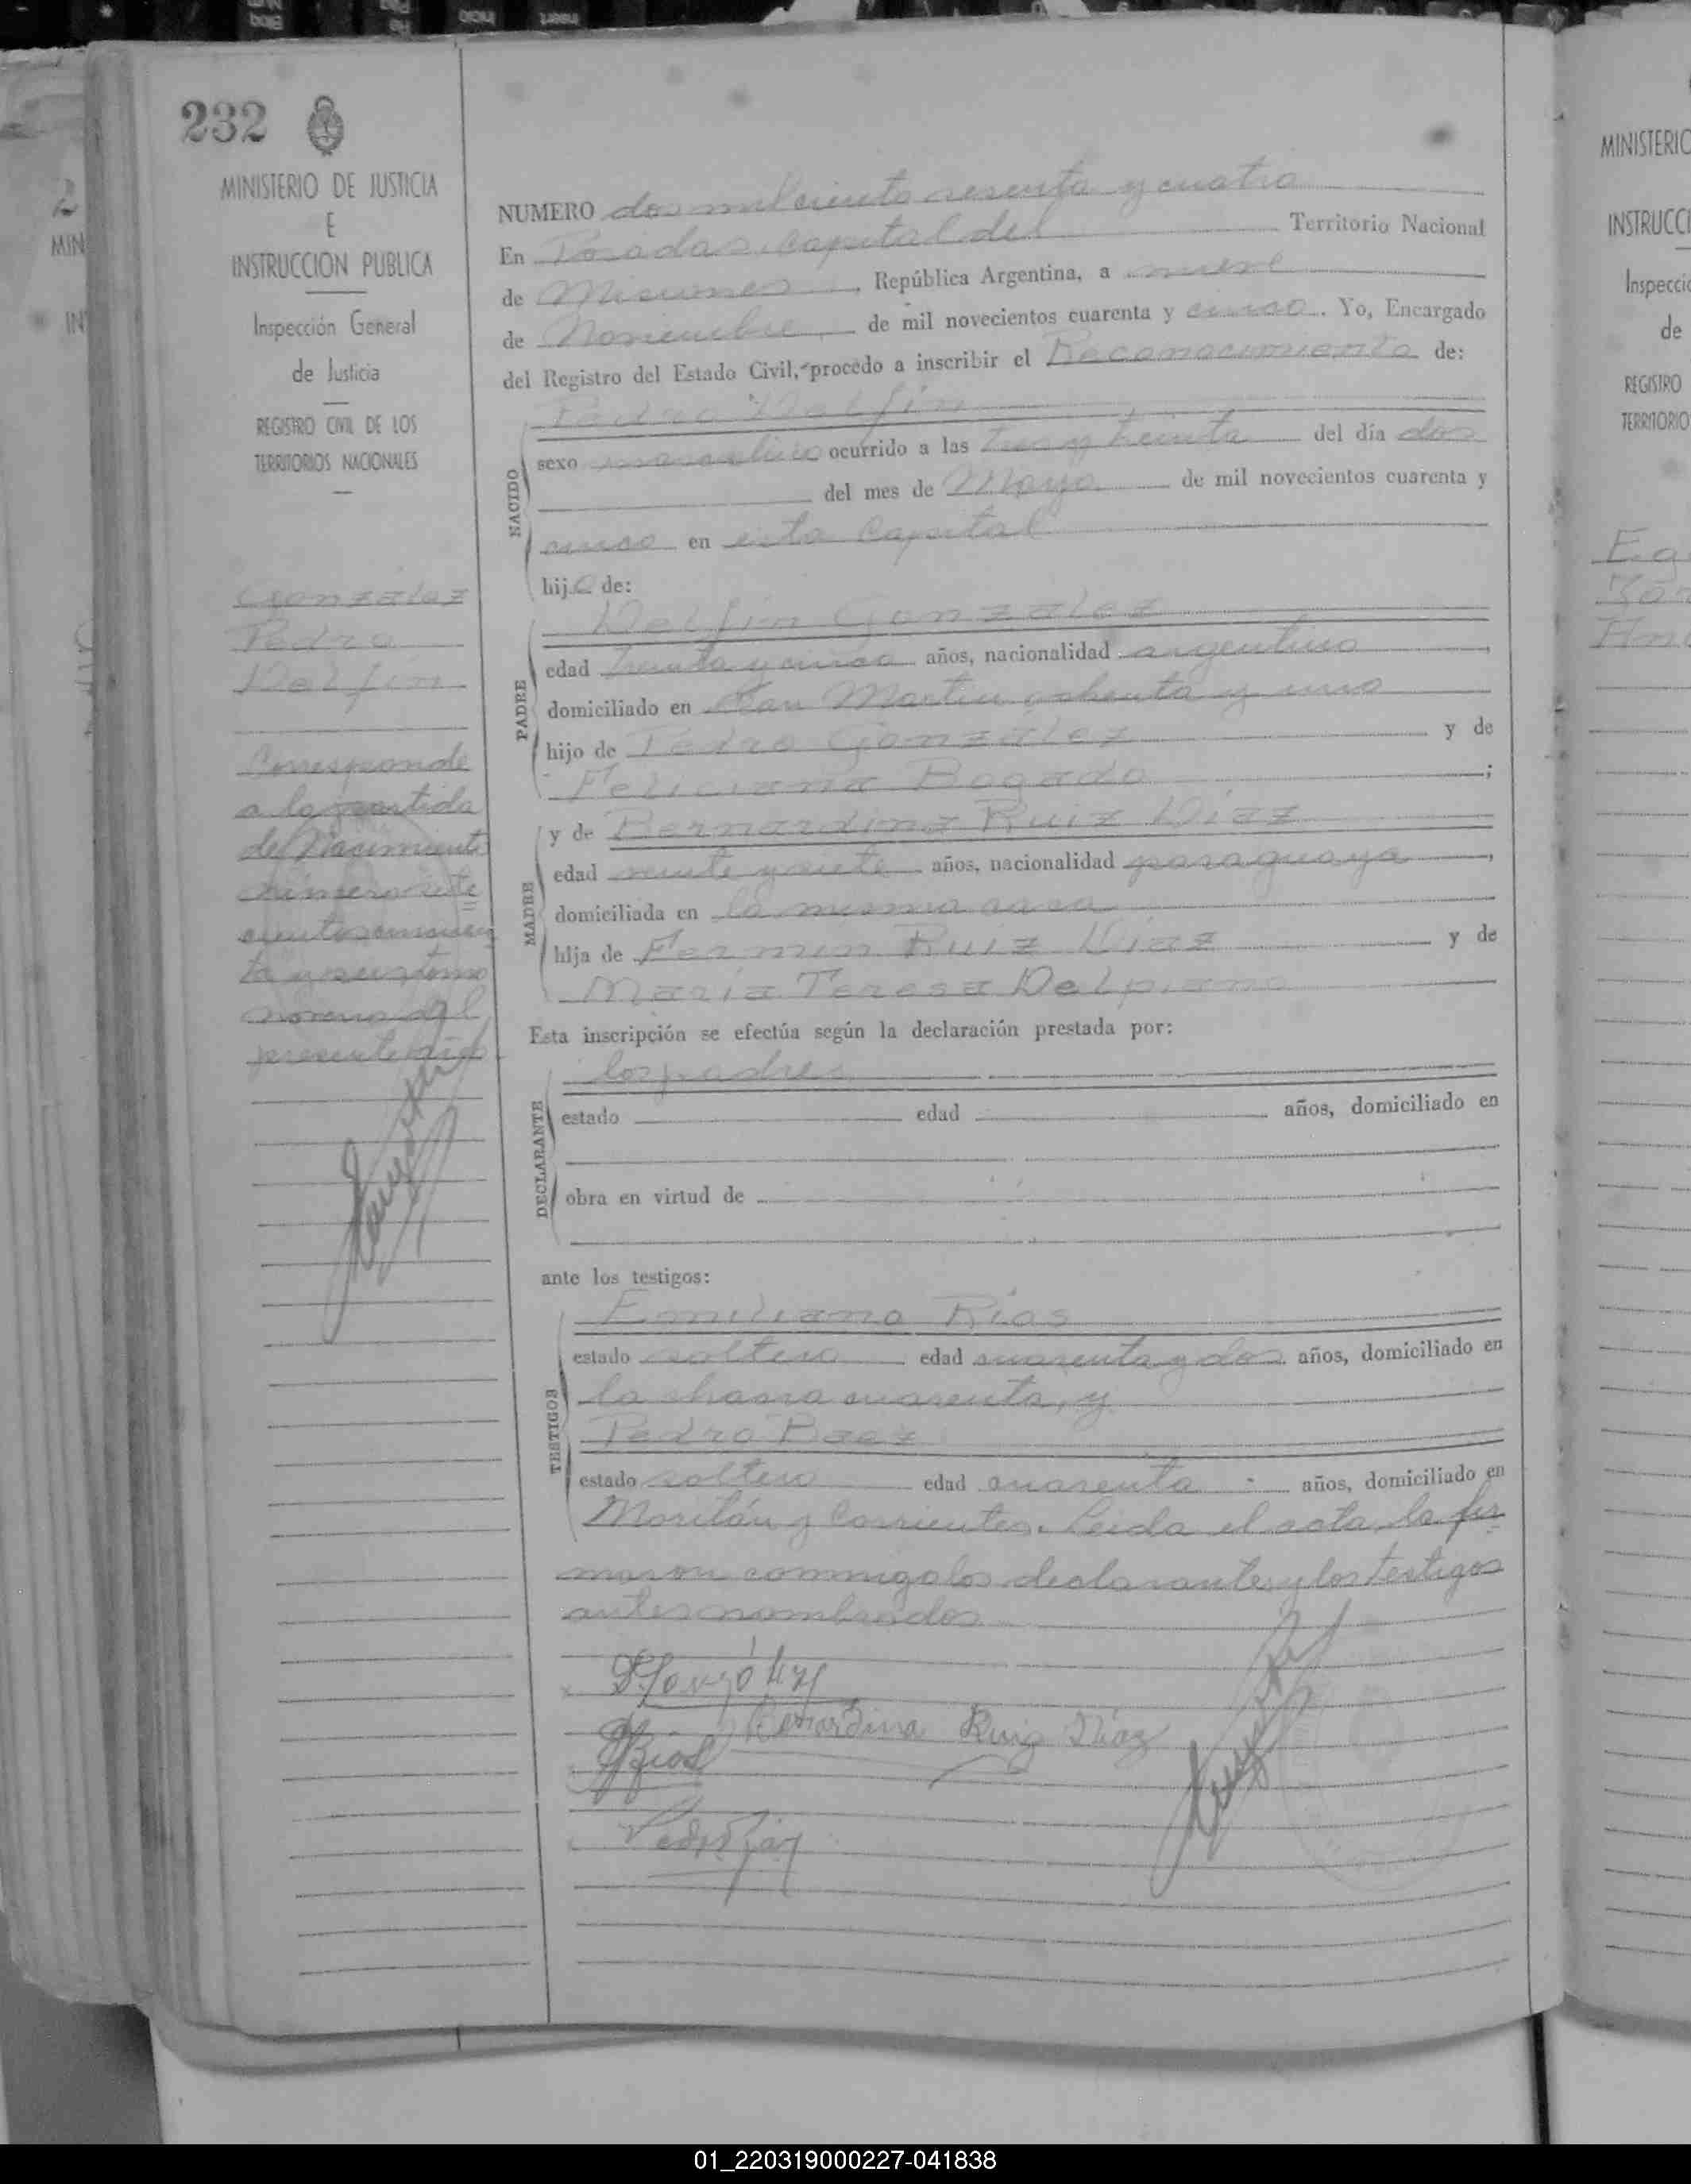 232
MINISTERIO DE JUSTICIA
E
INSTRUCCION PUBLICA
Inspección General
de Justicia
REGISTRO CIVIL DE LOS
TERRITORIOS NACIONALES
Gonzalez
Pedro
Delfin
Corresponde
a la partida
de Nacimiento
número siete
cientos cincuen
ta y seis tomo
noveno del
presente año
NUMERO dos mil ciento sesenta y cuatro
En Posadas, capital del Territorio Nacional
de Misiones, República Argentina, a nueve
de Noviembre de mil novecientos cuarenta y cinco. Yo, Encargado
del Registro del Estado Civil, procedo a inscribir el Reconocimiento de:
Pedro Delfin
NACIDO
sexo masculino ocurrido a las tres y treinta del día dos
del mes de Mayo de mil novecientos cuarenta y
cinco en esta Capital
hijo de:
Delfin Gonzalez
PADRE
edad treinta y cinco años, nacionalidad argentino
domiciliado en San Martin ochenta y uno
hijo de Pedro Gonzalez y de
Feliciana Bogado;
MADRE
y de Bernardina Ruiz Diaz
edad veinte y siete años, nacionalidad paraguaya,
domiciliada en la misma casa
hija de Fermin Ruiz Diaz y de
María Teresa Delpiano
Esta inscripción se efectúa según la declaración prestada por:
los padres
DECLARANTE
estado edad años, domiciliado en
obra en virtud de
ante los testigos:
Emiliano Rios
TESTIGOS
estado soltero edad cuarenta y dos años, domiciliado en
la chacra cuarenta, y
Pedro Baez
estado soltero edad cuarenta años, domiciliado en
y Corrientes. Leida el acta, la fir
maron conmigo los declarantes y los testigos
antes nombrados
Bernardina Ruiz Diaz
MINISTERIO
INSTRUCCI
Inspecció
de
REGISTRO
TERRITORIO
01_220319000227-041838